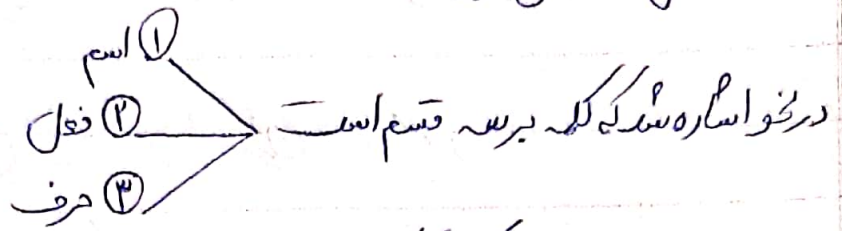 در نحو اشاره شد که کلمه بر سه قسم است
① اسم
② فعل
③ حرف